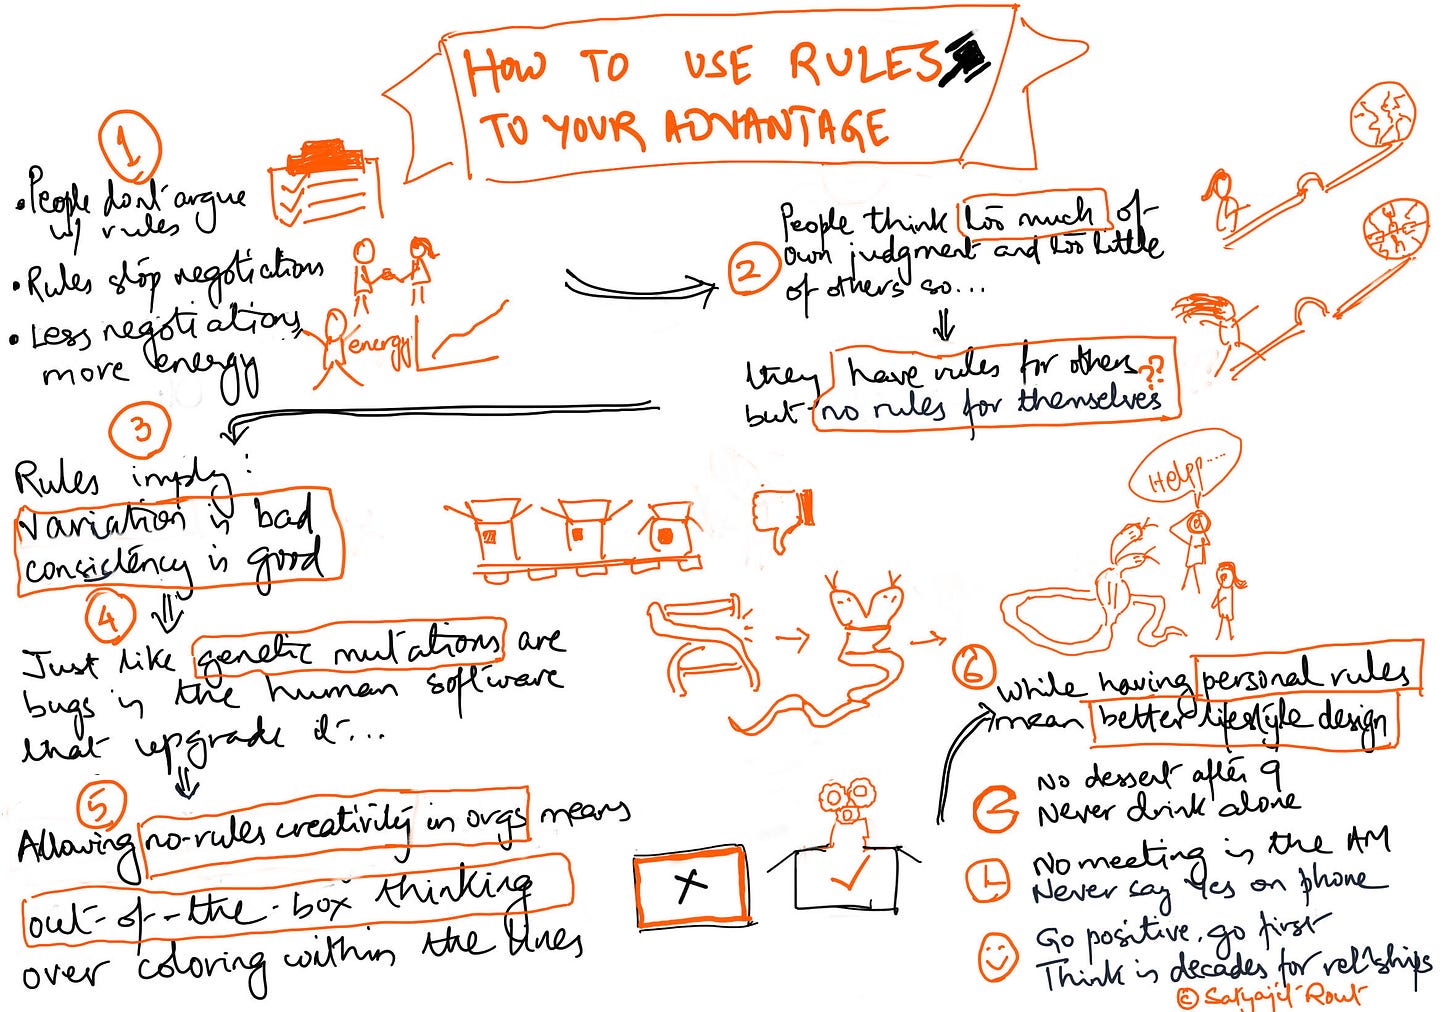 HOW TO USE RULES
TO YOUR ADVANTAGE
1
• People don't argue
w/ rules
• Rules stop negotiations
• Less negotiations,
more energy
energy
2
People think too much of
own judgment and too little
of others so...
they have rules for others
??
but no rules for themselves
3
Rules imply:
Variation is bad
consistency is good
4
Just like genetic mutations are
bugs in the human software
that upgrade it...
5
Allowing no-rules creativity in orgs means
out-of-the-box thinking
over coloring within the lines
HELP....
6
while having personal rules
mean better lifestyle design
No dessert after 9
Never drink alone
No meeting in the AM
Never say Yes on phone
Go positive, go first
Think in decades for rel'ships
© Satyajit Rout